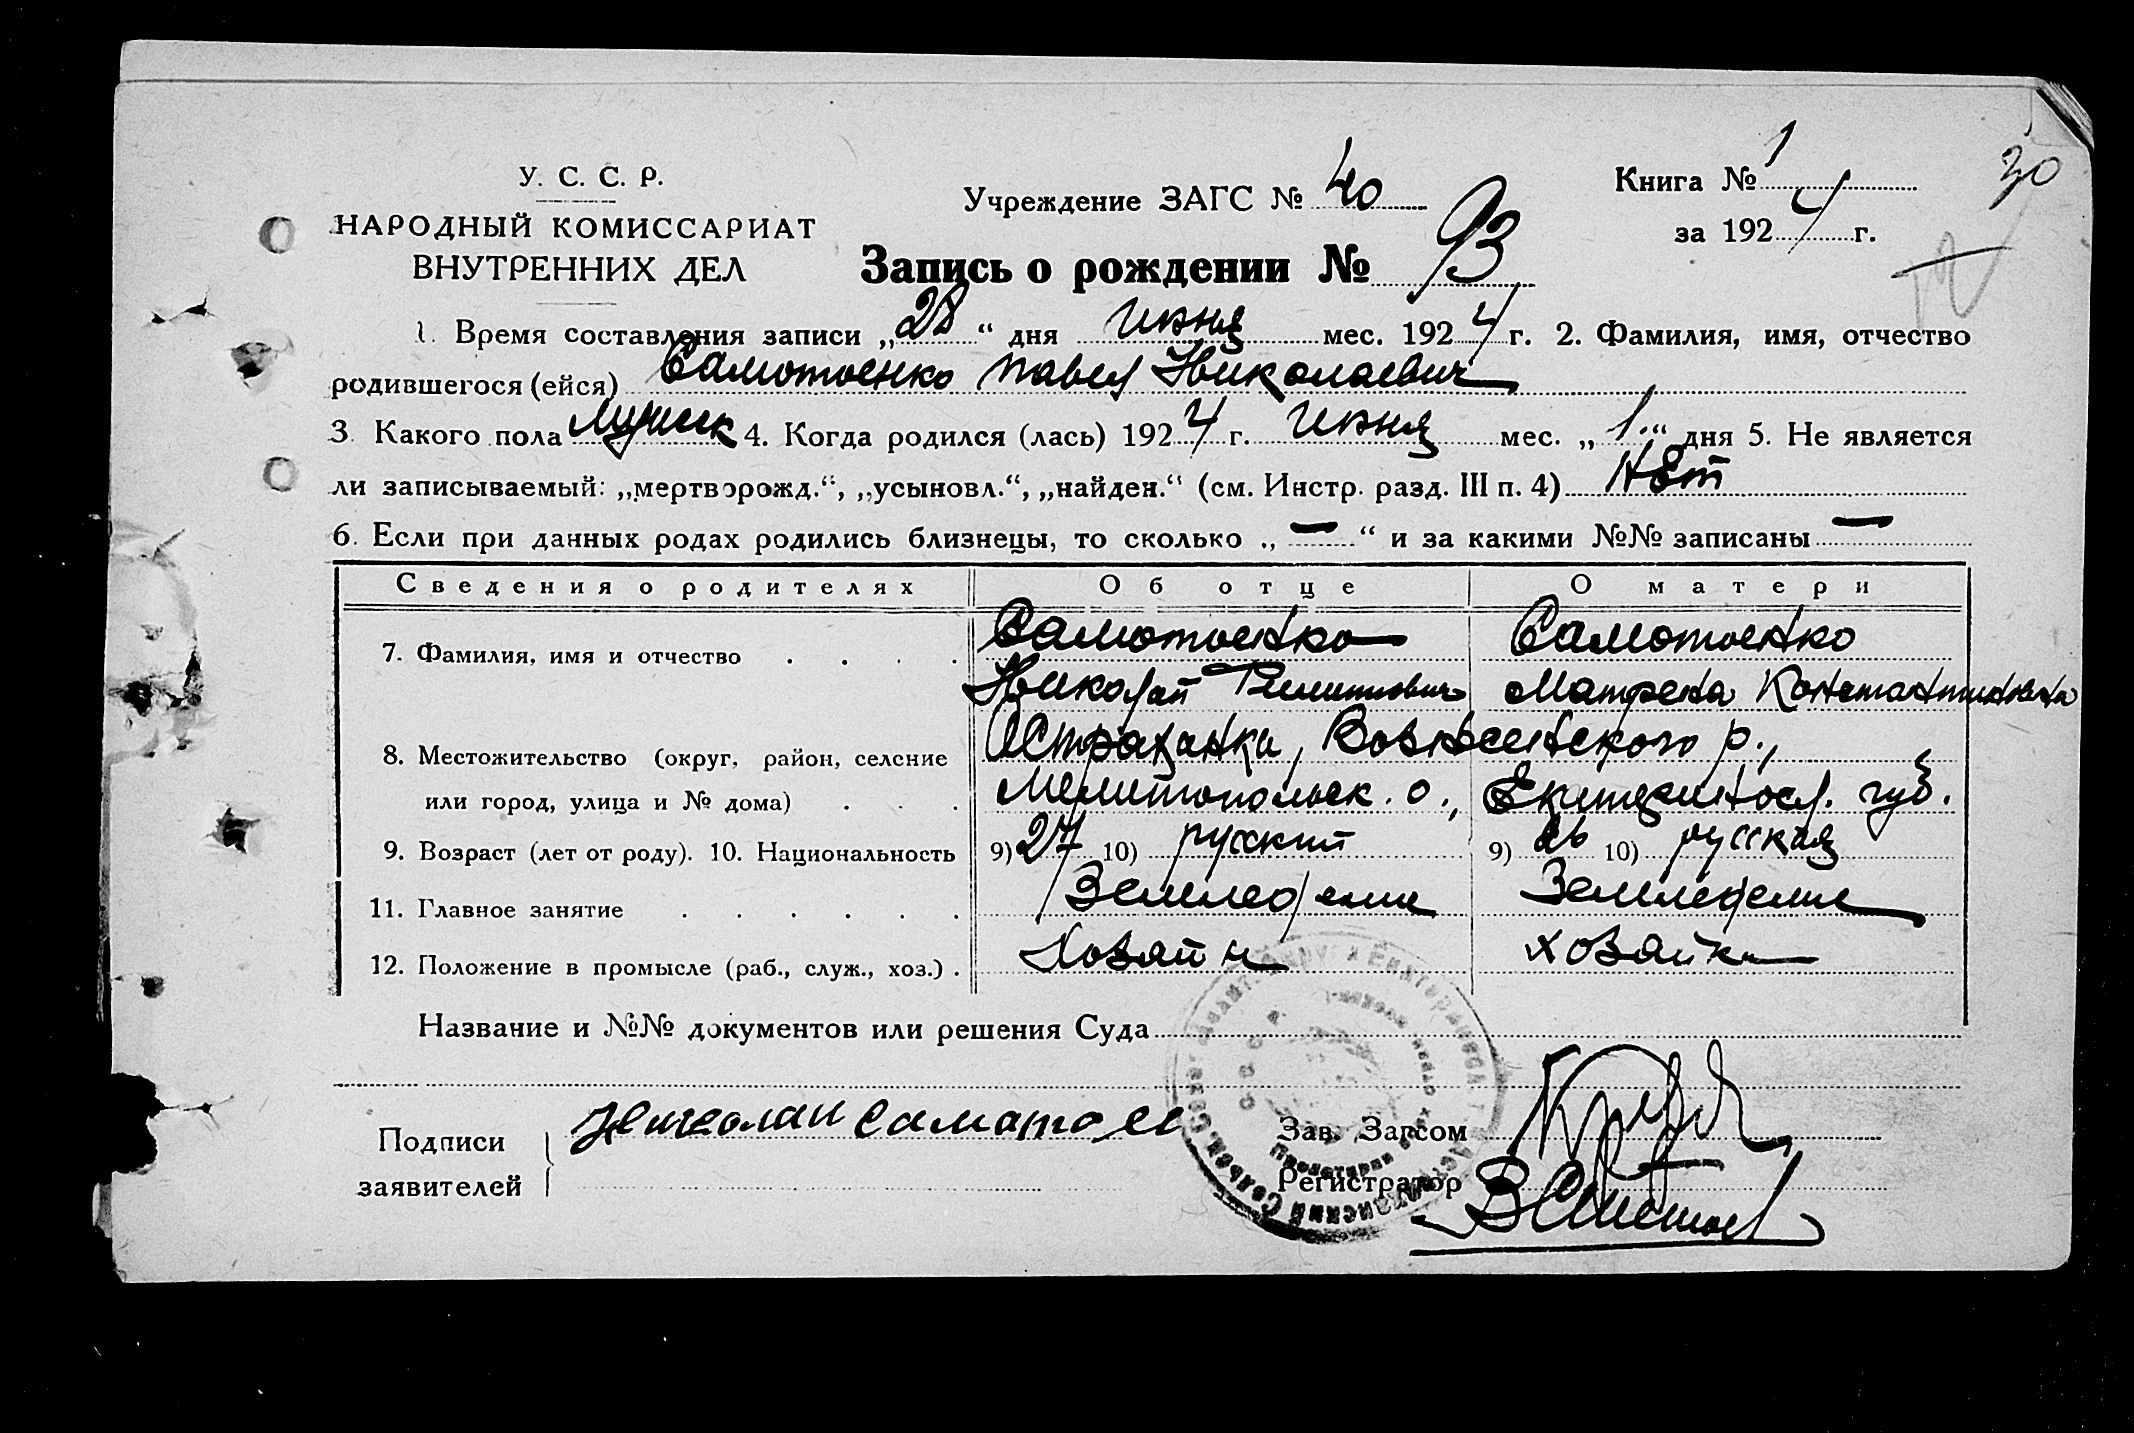 У. С. С. Р.
НАРОДНЫЙ КОМИССАРИАТ
ВНУТРЕННИХ ДЕЛ
Учреждение ЗАГС № 40
Книга № 1
за 1924 г.
30
Запись о рождении № 93
1. Время составления записи „28“ дня июня мес. 1924 г. 2. Фамилия, имя, отчество
родившегося (ейся) Самотоенко Павел Николаевич
3. Какого пола мужск 4. Когда родился (лась) 1924 г. июня мес. „1.“ дня 5. Не является
ли записываемый: „мертворожд.“, „усыновл.“, „найден.“ (см. Инстр. разд. III п. 4) нет
6. Если при данных родах родились близнецы, то сколько „—“ и за какими №№ записаны —
Сведения о родителях Об отце О матери
7. Фамилия, имя и отчество . . . . Самотоенко Самотоенко
Николай Филиппович Матрена Константиновна
8. Местожительство (округ, район, селение Астраханка, Вознесенского р.,
или город, улица и № дома) . . . Мелитопольск. о., Екатериносл. губ.
9. Возраст (лет от роду). 10. Национальность 9) 27 10) русский 9) 26 10) русская
11. Главное занятие . . . . . . Земледелие Земледелие
12. Положение в промысле (раб., служ., хоз.) . Хозяин хозяйка
Название и №№ документов или решения Суда
Подписи
заявителей
Николаи Саматоен
Зав. Загсом
Регистратор